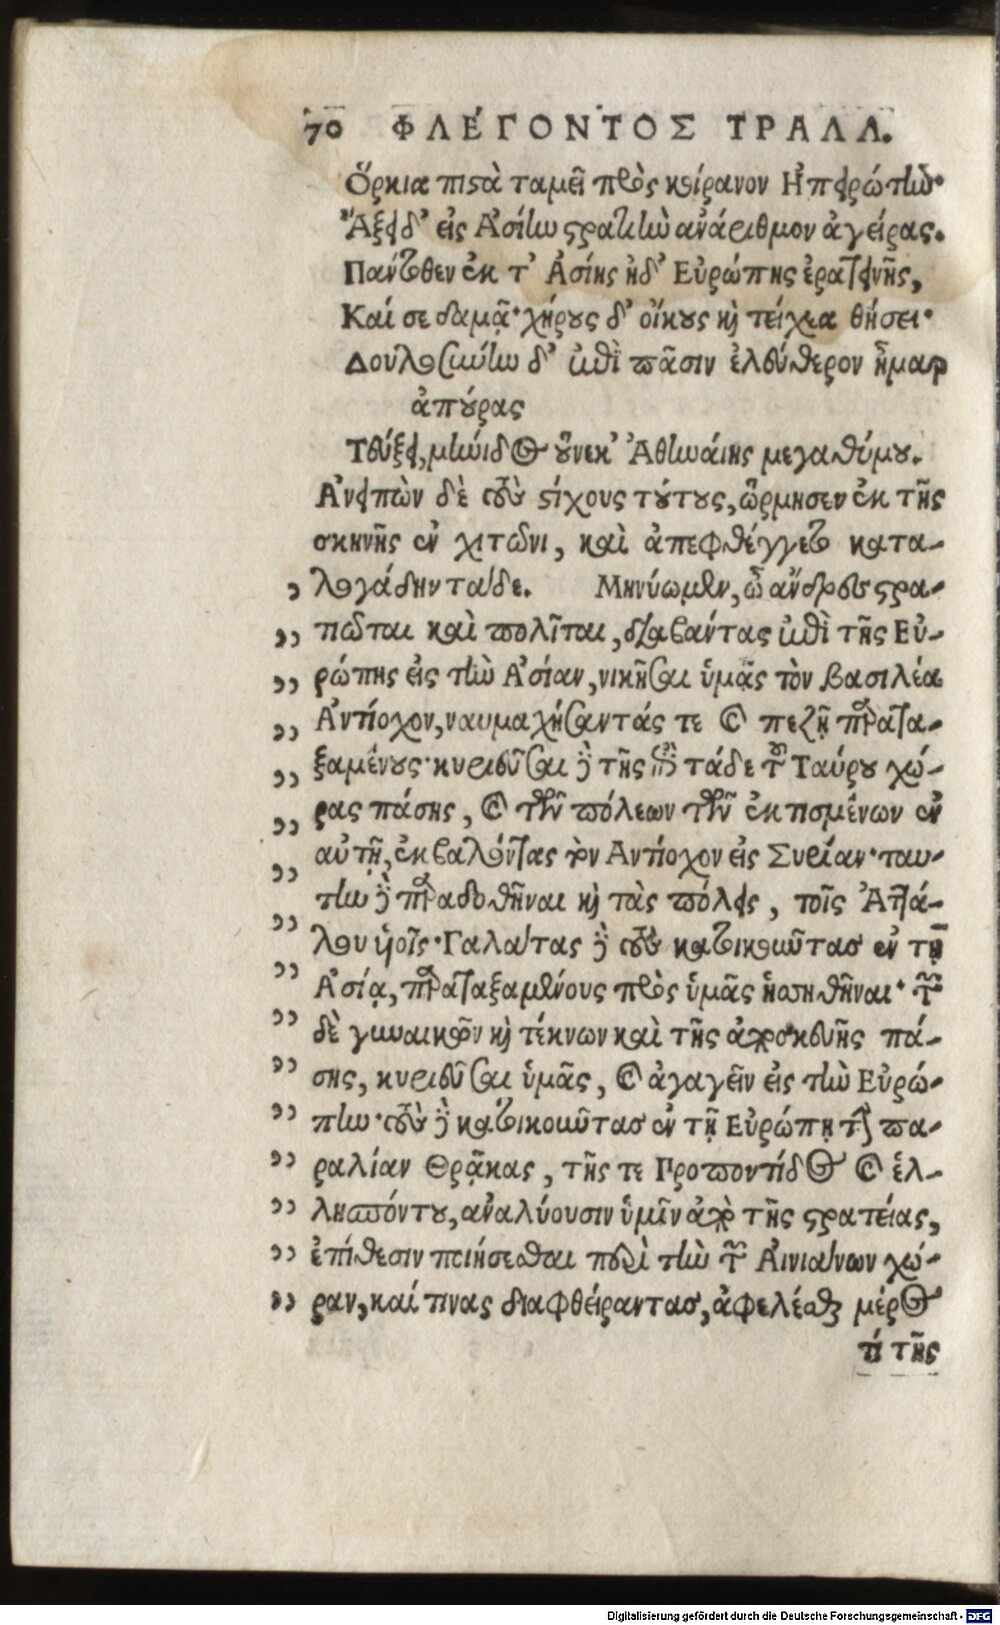 70 ΦΛΕΓΟΝΤΟΣ ΤΡΑΛΛ.
Ὅρκια πιστὰ ταμεῖ πρὸς κοίρανον Ηπειρώτην·
Ἄξει δ' εἰς Ἀσίην στρατιὴν ἀνάριθμον ἀγείρας.
Πάντοθεν ἐκ τ' Ἀσίης ἠδ' Εὐρώπης ἐρατεινῆς,
Καί σε δαμᾷ· χήρους δ' οἴκους καὶ τείχεα θήσει·
Δουλοσύνην δ' ἐπὶ πᾶσιν ἐλεύθερον ἦμαρ
ἀπούρας
Τεύξει, μήνιδος οὕνεκ' Ἀθηναίης μεγαθύμου.
Ἀνειπὼν δὲ τοὺς στίχους τούτους, ὥρμησεν ἐκ τῆς
σκηνῆς ἐν χιτῶνι, καὶ ἀπεφθέγγετο κατα-
„ λογάδην τάδε. Μηνύομεν, ὦ ἄνδρες στρα-
„ τιῶται καὶ πολῖται, διαβάντας ἐπὶ τῆς Εὐ-
„ ρώπης εἰς τὴν Ἀσίαν, νικῆσαι ὑμᾶς τὸν βασιλέα
„ Ἀντίοχον, ναυμαχήσαντάς τε καὶ πεζῇ παραταξ-
„ ξαμένους· κυριεῦσαι δὲ τῆς ἐπὶ τάδε τοῦ Ταύρου χώ-
„ ρας πάσης, καὶ τῶν πόλεων τῶν ἐκτισμένων ἐν
„ αὐτῇ, ἐκβαλόντας τὸν Ἀντίοχον εἰς Συρίαν· ταύ-
„ την δὲ παραδοθῆναι καὶ τὰς πόλεις, τοῖς Ἀττά-
„ λου υἱοῖς· Γαλάτας δὲ τοὺς κατοικοῦντας ἐν τῇ
„ Ἀσίᾳ, παραταξαμένους πρὸς ὑμᾶς ἡσσηθῆναι· τῶν
„ δὲ γυναικῶν καὶ τέκνων καὶ τῆς ἀποσκευῆς πά-
„ σης, κυριεῦσαι ὑμᾶς, καὶ ἀγαγεῖν εἰς τὴν Εὐρώ-
„ πην· τοὺς δὲ κατοικοῦντας ἐν τῇ Εὐρώπῃ τὴν πα-
„ ραλίαν Θρᾷκας, τῆς τε Προποντίδος καὶ ἑλ-
„ λησπόντου, ἀναλύουσιν ὑμῖν ἀπὸ τῆς στρατείας,
„ ἐπίθεσιν ποιήσεσθαι περὶ τὴν τῶν Αἰνιάνων χώ-
„ ραν, καί τινας διαφθείραντας, ἀφελέσθαι μέρος
τί τῆς
Digitalisierung gefördert durch die Deutsche Forschungsgemeinschaft - DFG